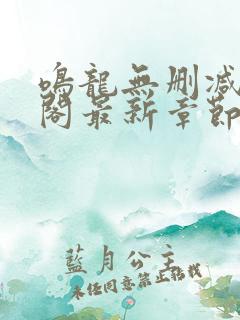 鳴龍無刪減
閣最新章節
藍月公主
未經同意禁止轉載